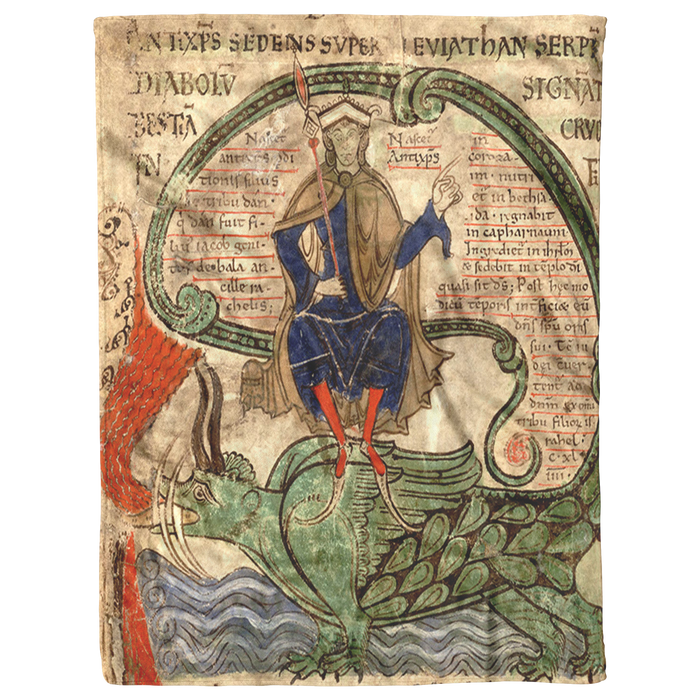 ANTIXP̄S SEDENS SUPER LEVIATHAN SERP
DIABOLŪ SIGNAT
BESTIĀ CRUD
IN
Nascet
antixp̄s · di
tionis filius
de tribu dan ·
q̄ dan fuit fi-
liu iacob geni-
tor de bala an-
cille ra-
chelis ·
Nascet̄
Antixp̄s
in
coroza-
im · nutri
et̄ in bethsa
ida · regnabit
in capharnaum ·
Ingrediet̄ in ihrl̄m
& sedebit in teplo di
quasi sit d̄s ; Post hec mo
dicū tēporis intficiæ eū
dn̄s spū oris
sui · Te iu
dei
tent̄ ad
dn̄m
tribu filior is
rahel ·
c · xl
iiii ·